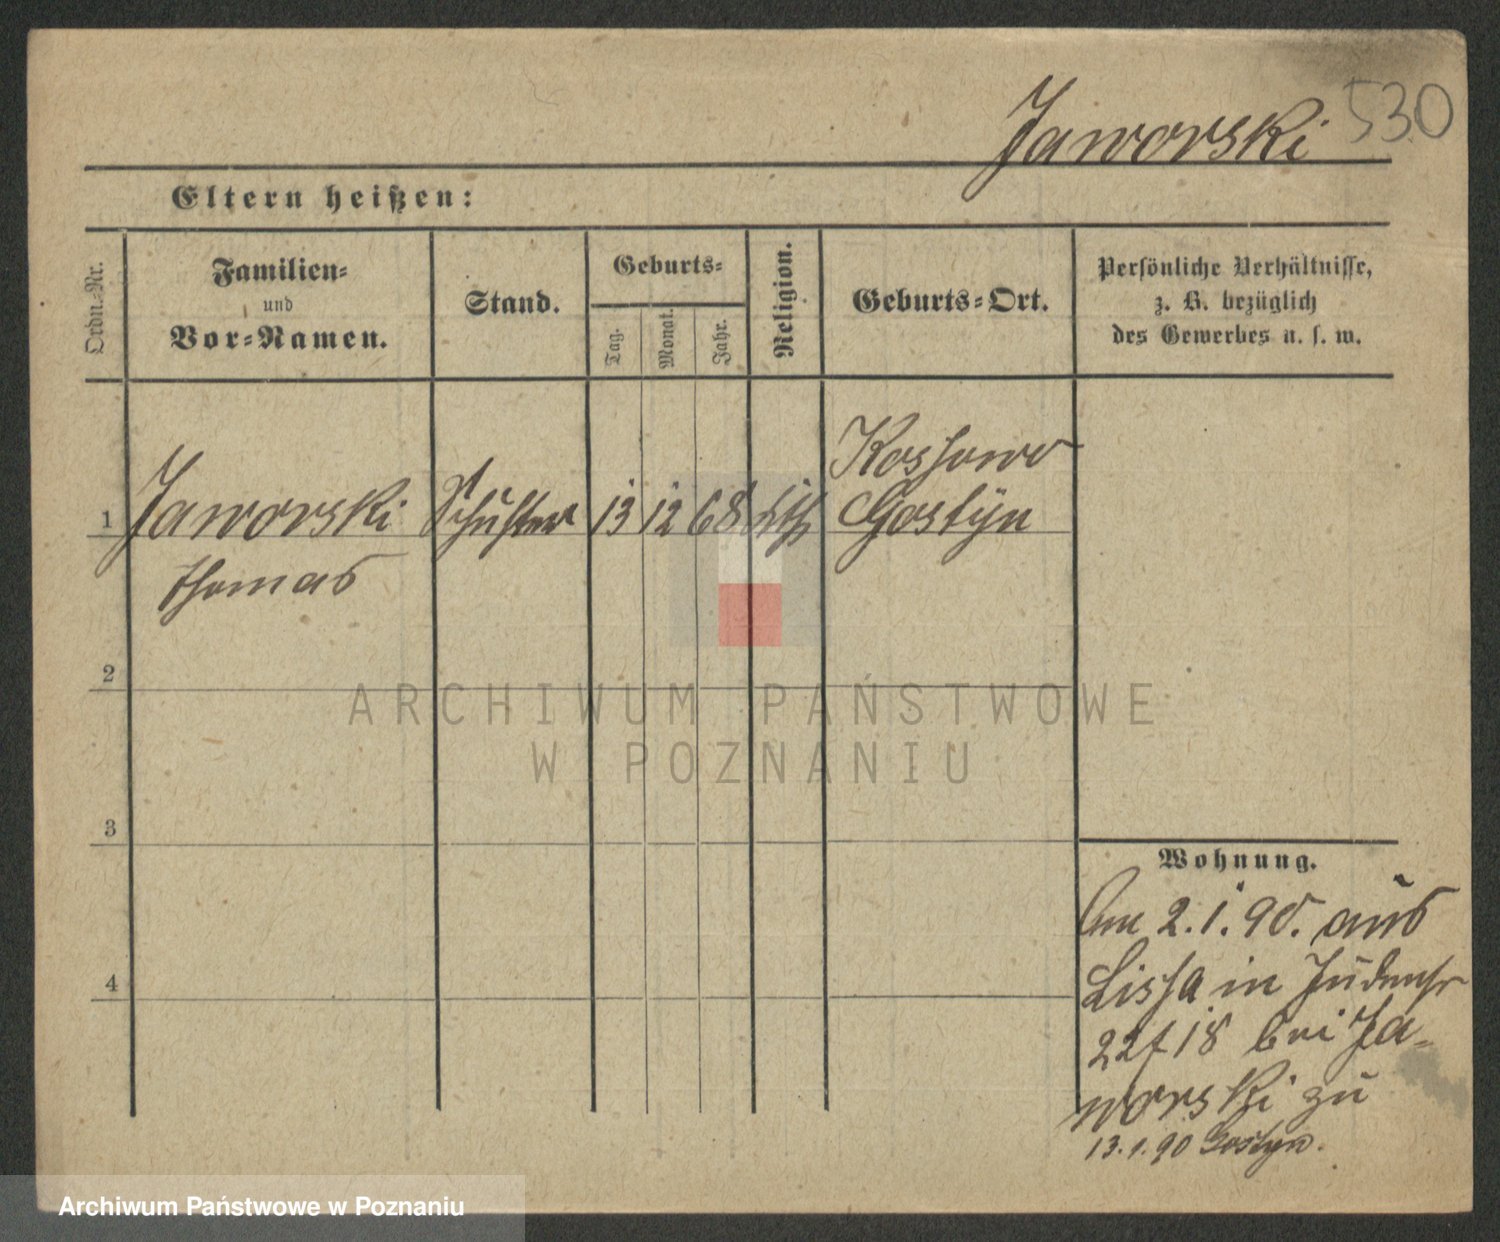 530
Jaworski
Eltern heißen:
Ordn.-Nr.
Familien-
und
Vor-Namen.
Stand.
Geburts-
Tag.
Monat.
Jahr.
Religion.
Geburts-Ort.
Persönliche Verhältnisse,
z. B. bezüglich
des Gewerbes u. s. w.
1
Jaworski
Thomas
Schuster
13
12
68
kth
Kossowo
Gostyn
2
3
4
Wohnung.
Am 2.1.90. aus
Lissa in Judenstr
22/18 bei Ja-
worski zu
13.1.90 Gostyn.
ARCHIWUM PAŃSTWOWE
W POZNANIU
Archiwum Państwowe w Poznaniu